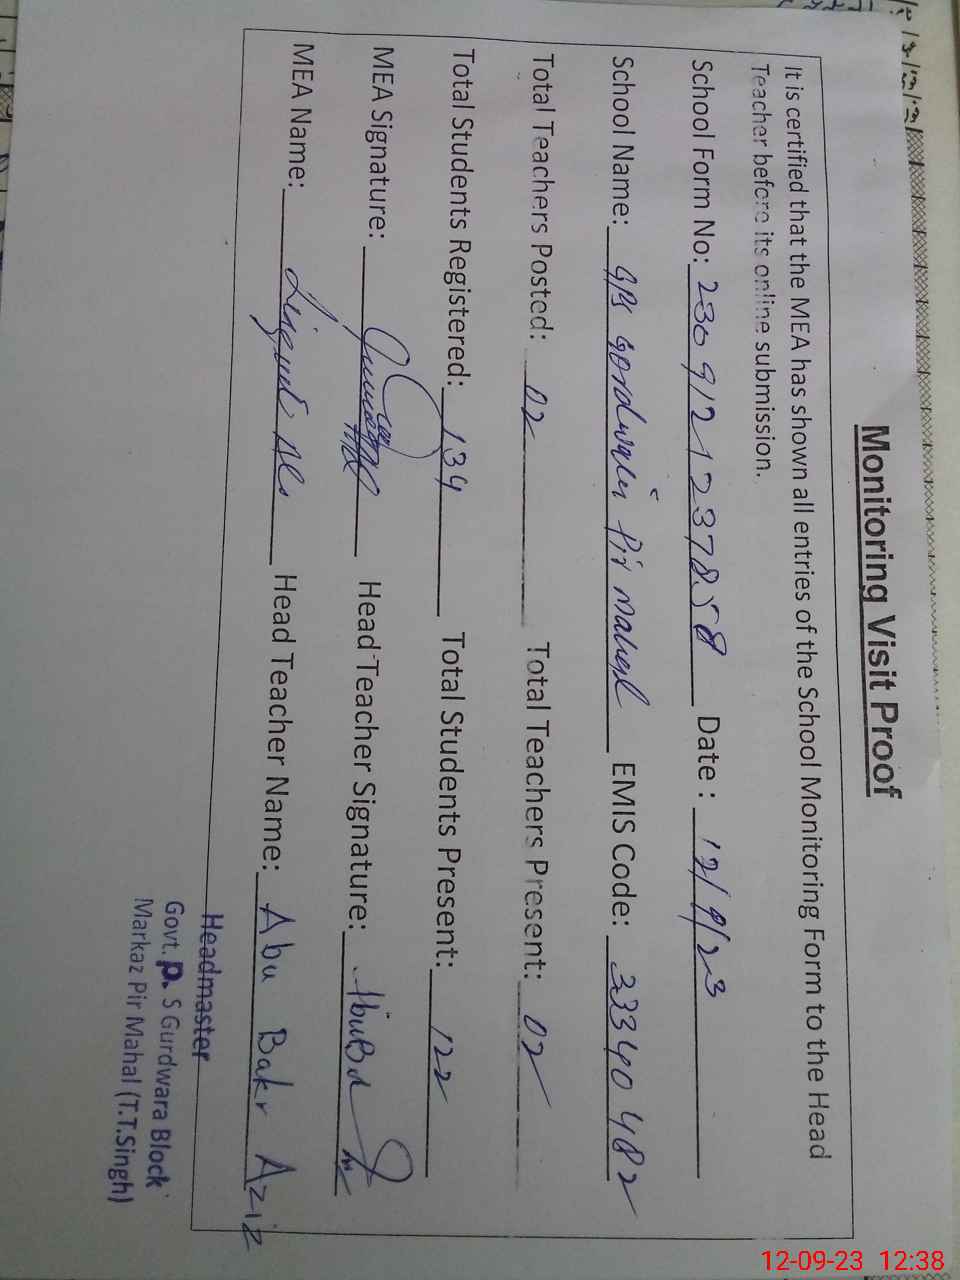 Monitoring Visit Proof
It is certified that the MEA has shown all entries of the School Monitoring Form to the Head
Teacher before its online submission.
School Form No: 230912123785 8 Date : 12/9/23
School Name: GPS Gordwara Pir Mahal EMIS Code: 33340482
Total Teachers Posted: 02 Total Teachers Present: 02
Total Students Registered: 134 Total Students Present: 122
MEA Signature: Head Teacher Signature:
MEA Name: Liaquat Ali Head Teacher Name: Abu Bakr Aziz
Headmaster
Govt. P. S Gurdwara Block
Markaz Pir Mahal (T.T.Singh)
12-09-23 12:38